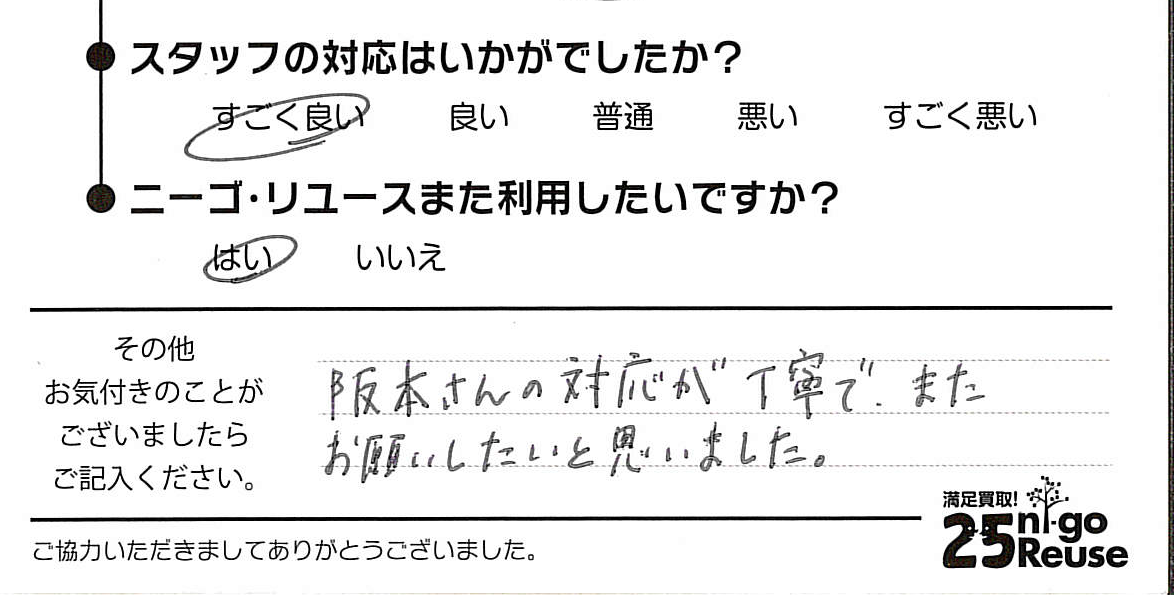 スタッフの対応はいかがでしたか？
すごく良い 良い 普通 悪い すごく悪い
ニーゴ・リユースまた利用したいですか？
はい いいえ
その他
お気付きのことが
ございましたら
ご記入ください。
阪本さんの対応が丁寧で、また
お願いしたいと思いました。
満足買取！
25 ni-go
Reuse
ご協力いただきましてありがとうございました。